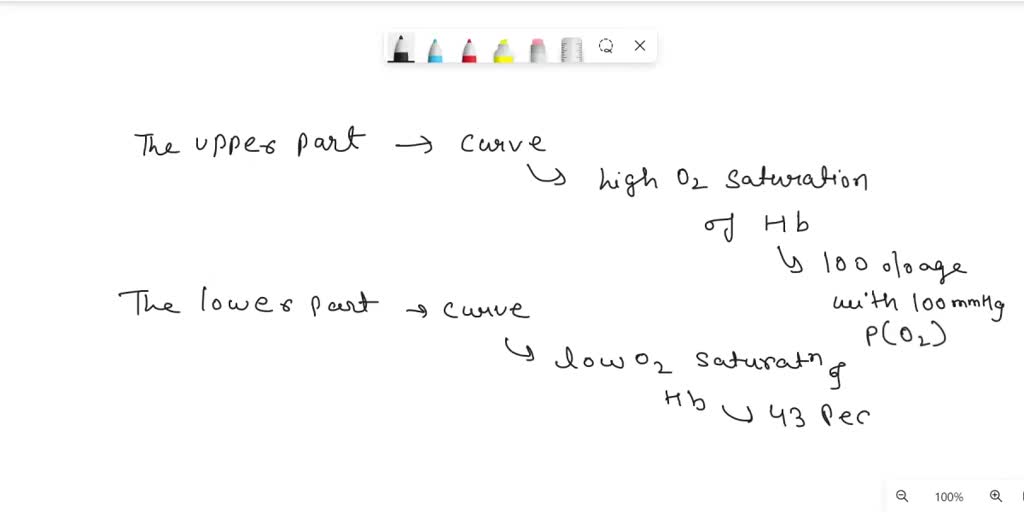 The upper part → curve
↳ high O2 saturation
of Hb
↳ 100 %age
with 100 mmHg
P(O2)
The lower part → curve
↳ low O2 saturatn of
Hb ↳ 43 Per
100%